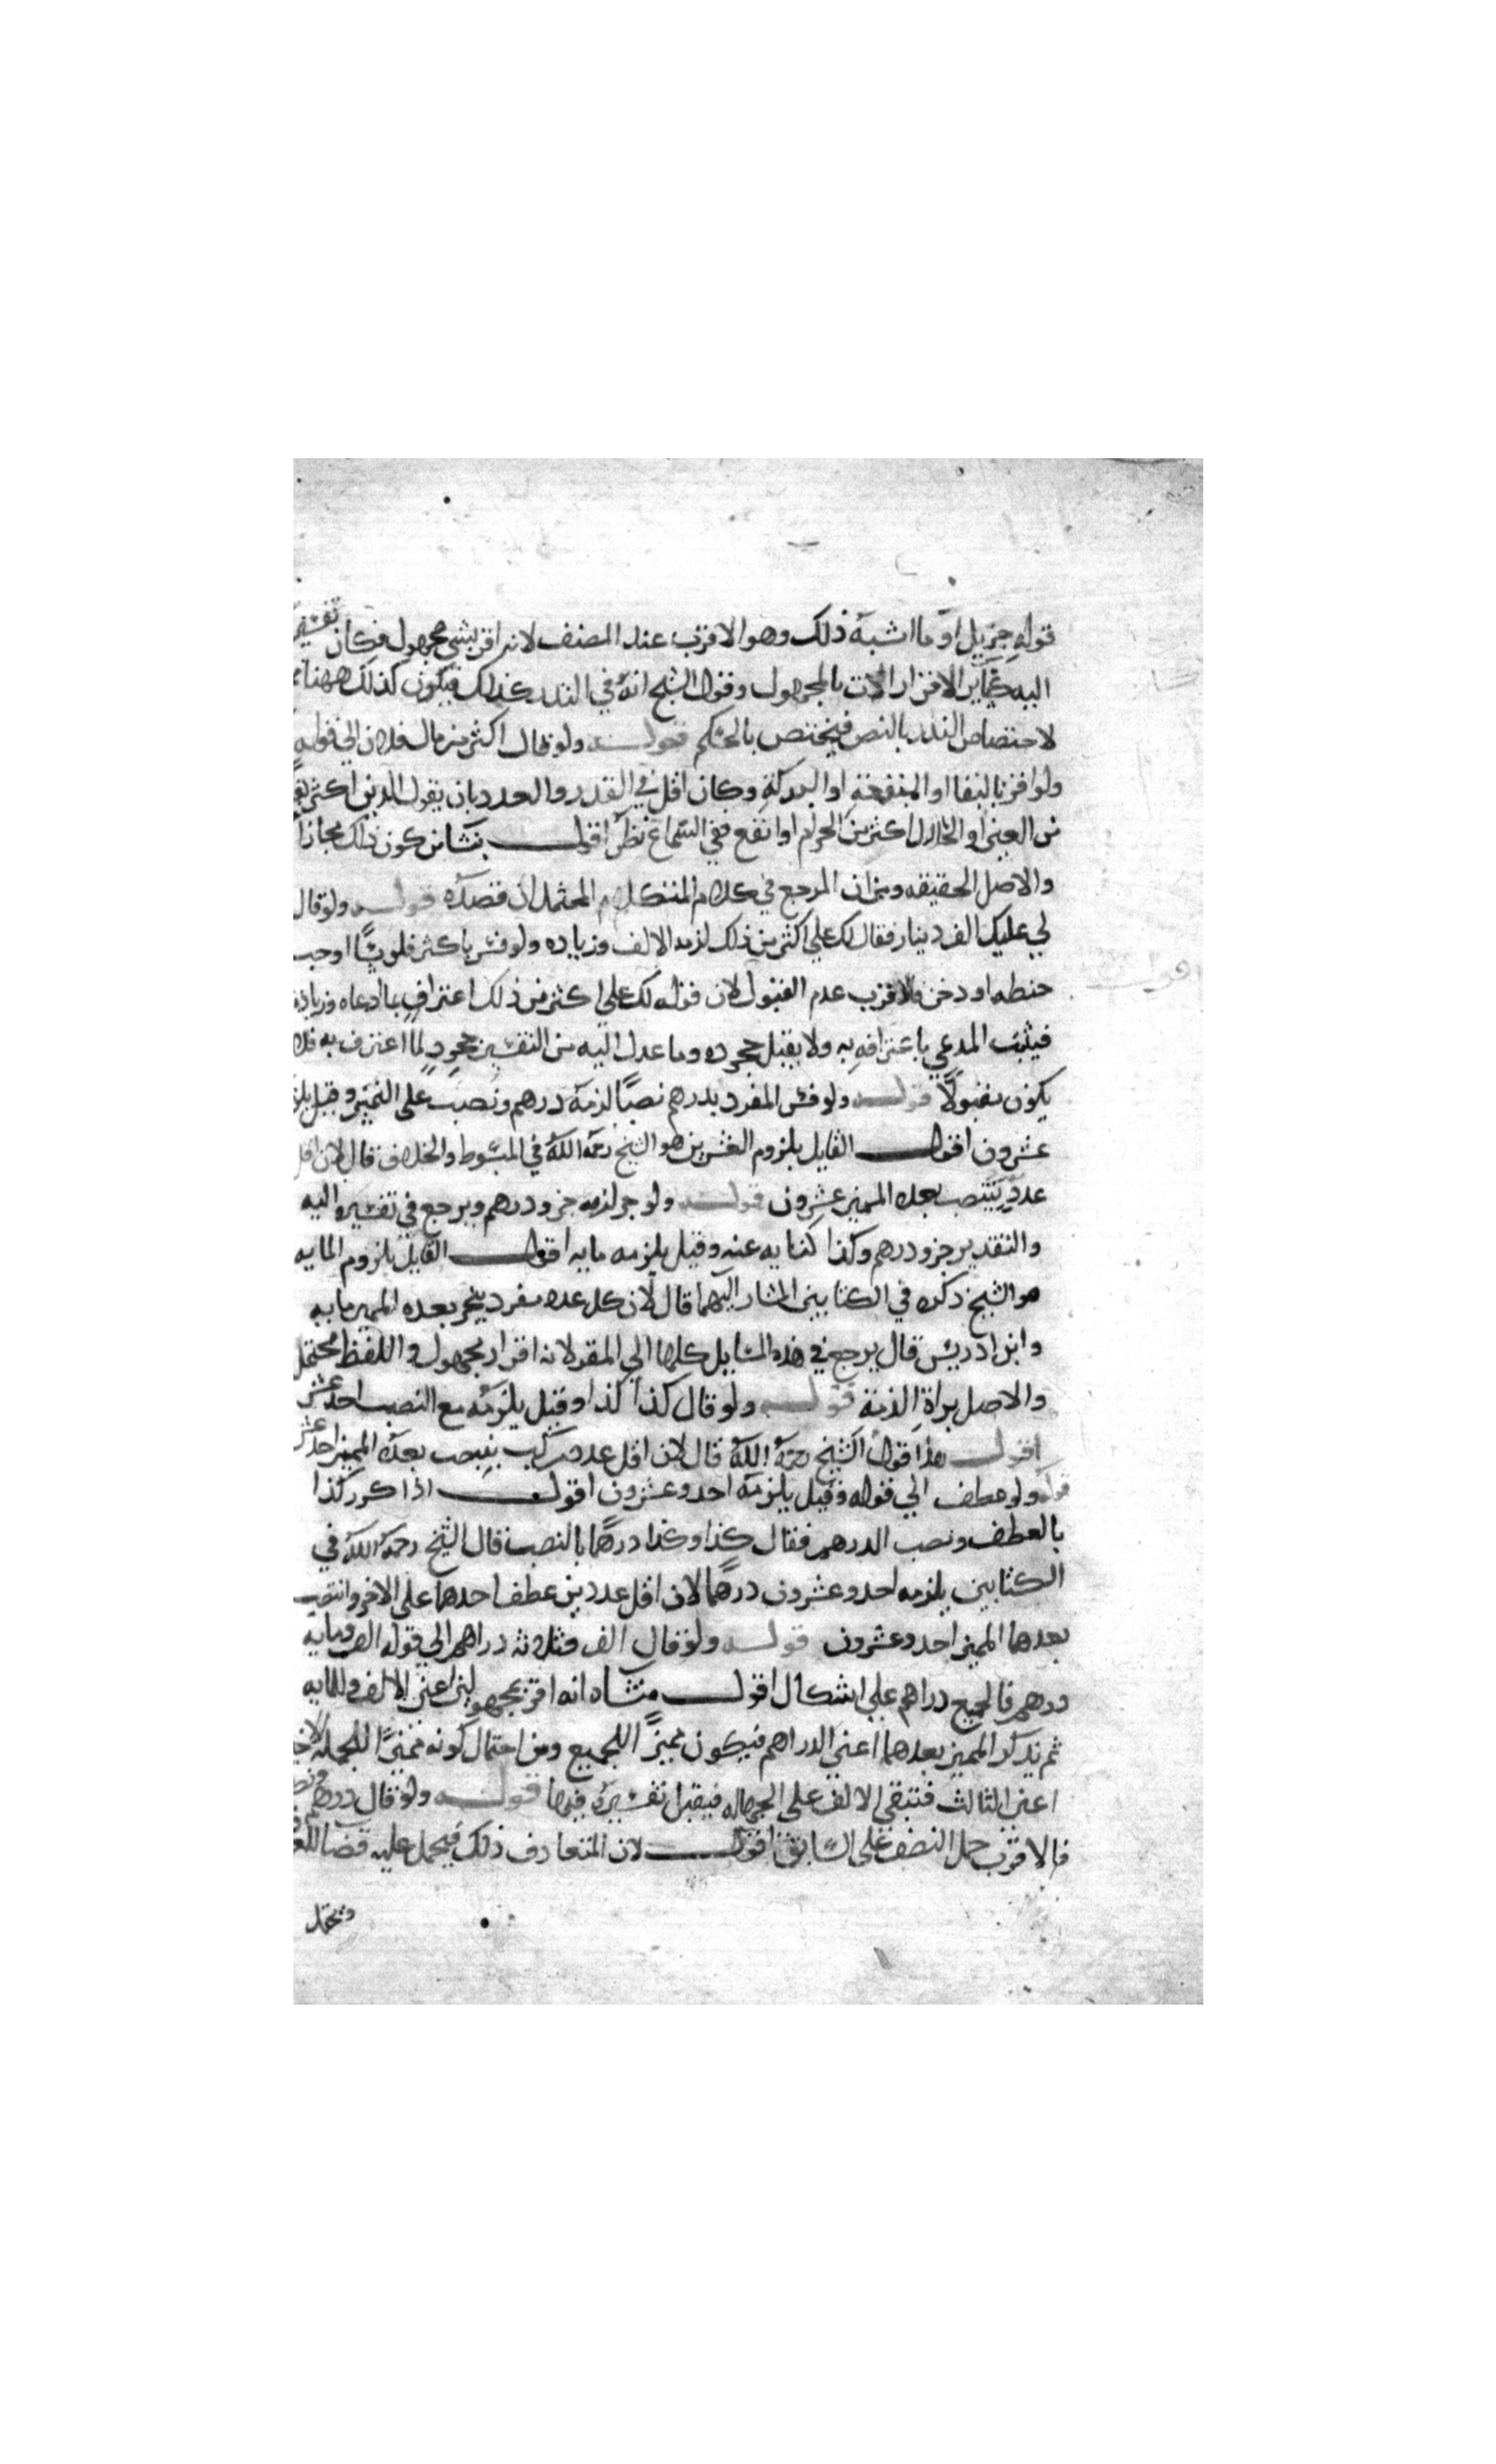 قوله جزيل او ما اشبه ذلك وهو الاقرب عند المصنف لانه اقر بشي مجهول فكان تفسيره
اليه كساير الاقرارات بالمجهول وقول الشيخ انه في النذر كذلك فيكون كذلك ههنا
لاختصاص النذر بالنص فيختص بالحكم قولـــه ولو قال اكثر من مال فلان الي قوله
ولو اقر بالبقا او المنفعة او البركة وكان اقل في القدر والعدد بان يقول الدين اكثر
من العين او الحلال اكثر من الحرام او انفع ففي السماع نظر اقول ينشا من كون ذلك مجازا
والاصل الحقيقه ومن ان المرجع في كلام المتكلم المحتمل ان قصده قولـــه ولو قال
لي عليك الف دينار فقال لك علي اكثر من ذلك لزمه الالف وزياده ولو فسر باكثر فلوسًا اوحب
حنطه او دخن فالاقرب عدم القبول لان قوله لك علي اكثر من ذلك اعتراف بما ادعاه وزياده
فيثبت المدعي باعترافه به ولا يقبل جحوده وما عدل اليه من التفسير جحود لما اعترف به فلا
يكون مقبولًا قولـــه ولو فسر المفرد بدرهم نصبًا لزمه درهم ونصب على التميز وقيل يلزمه
عشرون اقول القايل بلزوم العشرين هو الشيخ رحمه الله في المبسوط والخلاف قال لان اقل
عدد ينتصب بعده المميز عشرون قولـــه ولو جر لزمه جزو درهم ويرجع في تفسيره اليه
والتقدير جزو درهم وكذا كنايه عنه وقيل يلزمه مايه اقول القايل بلزوم المايه
هو الشيخ ذكره في الكتابين المشار اليهما قال لان كل عدد مفرد ينجر بعده المميز مايه
وابن ادريس قال يرجع في هذه المسايل كلها الي المقر لانه اقرار بمجهول واللفظ محتمل
والاصل براة الذمة قولـــه ولو قال كذا كذا وقيل يلزمه مع النصب احد عشر
اقول هذا قول الشيخ رحمه الله قال لان اقل عدد مركب ينصب بعده المميز احد عشر
قوله ولو عطف الي قوله وقيل يلزمه احد وعشرون اقول اذا كرر كذا
بالعطف ونصب الدرهم فقال كذا وكذا درهمًا بالنصب قال الشيخ رحمه الله في
الكتابين يلزمه احد وعشرون درهمًا لان اقل عددين عطف احدهما على الاخر وانتصب
بعدهما المميز احد وعشرون قولـــه ولو قال الف وثلاثه دراهم الي قوله الف ومايه
درهم فالجميع دراهم علي اشكال اقول منشاه انه اقر بمجهولين اعني الالف والمايه
ثم يذكر المميز بعدهما اعني الدراهم فيكون مميزًا للجميع ومن احتمال كونه مميزًا للجمله
اعني الثالث فتبقى الالف على الجهاله فيقبل تفسيره فيها قولـــه ولو قال درهم ونصف
فالاقرب حمل النصف على السابق اقول لان المتعارف ذلك فيحمل عليه قضا للعرف
ويحتمل